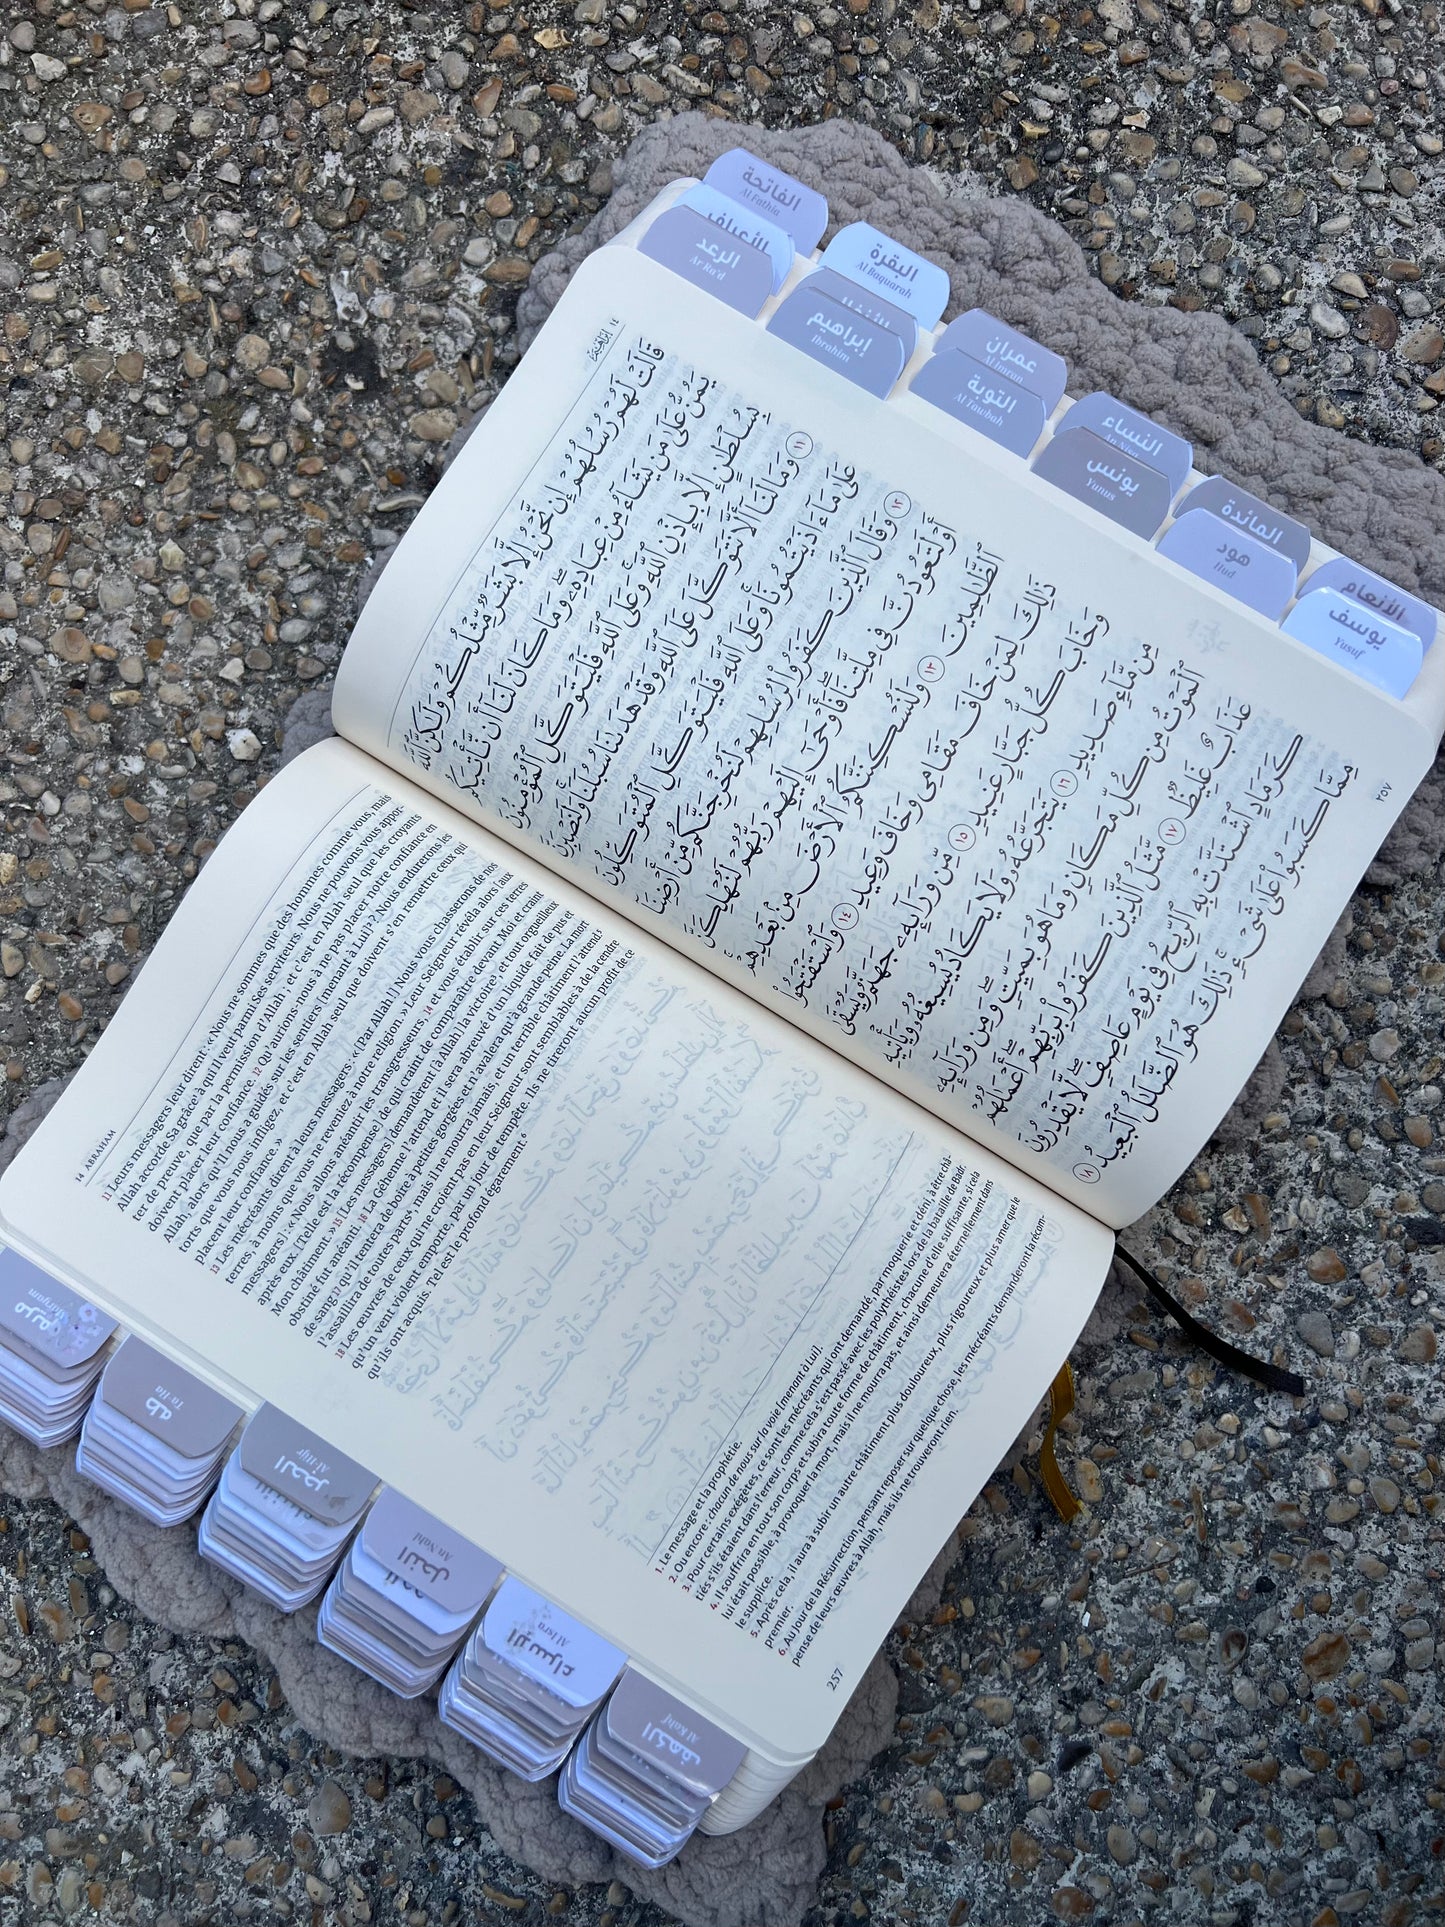 الفاتحة
Al Fathia
الأعراف
الرعد
Ar Ra'd
البقرة
Al Baquarah
إبراهيم
Ibrahim
عمران
Al Imran
التوبة
Al Tawbah
النساء
An Nisa
يونس
Yunus
المائدة
هود
Hud
الأنعام
يوسف
Yusuf
١٤ إبراهيم
قَالَتْ لَهُمْ رُسُلُهُمْ إِن نَّحْنُ إِلَّا بَشَرٌ مِّثْلُكُمْ وَلَـٰكِنَّ ٱللَّهَ
يَمُنُّ عَلَىٰ مَن يَشَآءُ مِنْ عِبَادِهِۦ ۖ وَمَا كَانَ لَنَآ أَن نَّأْتِيَكُم
بِسُلْطَـٰنٍ إِلَّا بِإِذْنِ ٱللَّهِ ۚ وَعَلَى ٱللَّهِ فَلْيَتَوَكَّلِ ٱلْمُؤْمِنُونَ
١١ وَمَا لَنَآ أَلَّا نَتَوَكَّلَ عَلَى ٱللَّهِ وَقَدْ هَدَىٰنَا سُبُلَنَا ۚ وَلَنَصْبِرَنَّ
عَلَىٰ مَآ ءَاذَيْتُمُونَا ۚ وَعَلَى ٱللَّهِ فَلْيَتَوَكَّلِ ٱلْمُتَوَكِّلُونَ
١٢ وَقَالَ ٱلَّذِينَ كَفَرُوا۟ لِرُسُلِهِمْ لَنُخْرِجَنَّكُم مِّنْ أَرْضِنَآ
أَوْ لَتَعُودُنَّ فِى مِلَّتِنَا ۖ فَأَوْحَىٰٓ إِلَيْهِمْ رَبُّهُمْ لَنُهْلِكَنَّ
ٱلظَّـٰلِمِينَ ١٣ وَلَنُسْكِنَنَّكُمُ ٱلْأَرْضَ مِنۢ بَعْدِهِمْ ۚ
ذَٰلِكَ لِمَنْ خَافَ مَقَامِى وَخَافَ وَعِيدِ ١٤ وَٱسْتَفْتَحُوا۟
وَخَابَ كُلُّ جَبَّارٍ عَنِيدٍ ١٥ مِّن وَرَآئِهِۦ جَهَنَّمُ وَيُسْقَىٰ
مِن مَّآءٍ صَدِيدٍ ١٦ يَتَجَرَّعُهُۥ وَلَا يَكَادُ يُسِيغُهُۥ وَيَأْتِيهِ
ٱلْمَوْتُ مِن كُلِّ مَكَانٍ وَمَا هُوَ بِمَيِّتٍ ۖ وَمِن وَرَآئِهِۦ
عَذَابٌ غَلِيظٌ ١٧ مَّثَلُ ٱلَّذِينَ كَفَرُوا۟ بِرَبِّهِمْ ۖ أَعْمَـٰلُهُمْ
كَرَمَادٍ ٱشْتَدَّتْ بِهِ ٱلرِّيحُ فِى يَوْمٍ عَاصِفٍ ۖ لَّا يَقْدِرُونَ
مِمَّا كَسَبُوا۟ عَلَىٰ شَىْءٍ ۚ ذَٰلِكَ هُوَ ٱلضَّلَـٰلُ ٱلْبَعِيدُ ١٨
٢٥٧
14 ABRAHAM
11 Leurs messagers leur dirent : « Nous ne sommes que des hommes comme vous, mais
Allah accorde Sa grâce à qui Il veut parmi Ses serviteurs. Nous ne pouvons vous appor-
ter de preuve, que par la permission d'Allah ; et c'est en Allah seul que les croyants
doivent placer leur confiance. 12 Qu'aurions-nous à ne pas placer notre confiance en
Allah, alors qu'Il nous a guidés sur les sentiers [menant à Lui]² ? Nous endurerons les
torts que vous nous infligez, et c'est en Allah seul que doivent s'en remettre ceux qui
placent leur confiance. »
13 Les mécréants dirent à leurs messagers. « [Par Allah !] Nous vous chasserons de nos
terres, à moins que vous ne reveniez à notre religion. » Leur Seigneur révéla alors [aux
messagers] : « Nous allons anéantir les transgresseurs, 14 et vous établir sur ces terres
après eux. [Telle est la récompense] de qui craint de comparaître devant Moi et craint
Mon châtiment. » 15 [Les messagers] demandèrent [à Allah] la victoire³ et tout orgueilleux
obstiné fut anéanti. 16 La Géhenne l'attend et il sera abreuvé d'un liquide fait de pus et
de sang 17 qu'il tentera de boire à petites gorgées et n'avalera qu'à grande peine. La mort
l'assaillira de toutes parts⁴, mais il ne mourra jamais, et un terrible châtiment l'attend.⁵
18 Les œuvres de ceux qui ne croient pas en leur Seigneur sont semblables à de la cendre
qu'un vent violent emporte, par un jour de tempête. Ils ne tireront aucun profit de ce
qu'ils ont acquis. Tel est le profond égarement.⁶
1. Le message et la prophétie.
2. Ou encore : chacun de nous sur la voie [menant à Lui].
3. Pour certains exégètes, ce sont les mécréants qui ont demandé, par moquerie et déni, à être châ-
tiés s'ils étaient dans l'erreur, comme cela s'est passé avec les polythéistes lors de la bataille de Badr.
4. Il souffrira en tout son corps et subira toute forme de châtiment, chacune d'elle suffisante, si cela
lui était possible, à provoquer la mort, mais il ne mourra pas, et ainsi demeurera éternellement dans
le supplice.
5. Après cela, il aura à subir un autre châtiment plus douloureux, plus rigoureux et plus amer que le
premier.
6. Au jour de la Résurrection, pensant reposer sur quelque chose, les mécréants demanderont la récom-
pense de leurs œuvres à Allah, mais ils ne trouveront rien.
257
مريم
Maryam
طه
Ta Ha
الحجر
Al-Hijr
النحل
An Nahl
الإسراء
Al Isra
الكهف
Al Kahf